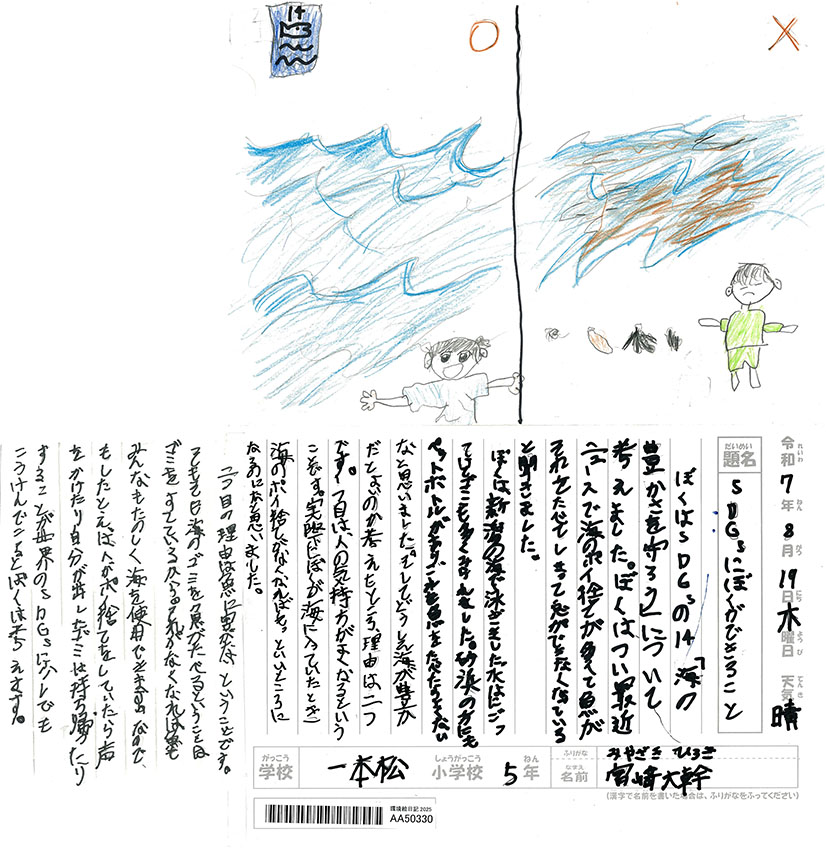 14
令和7年8月19日木曜日 天気 晴
れいわ ねん がつ にち ようび てんき
だいめい
題名 SDGsにぼくができること
ぼくはSDGsの14「海の
豊かさを守ろう」について
考えました。ぼくはつい最近
ニュースで海のポイ捨てが多くて魚が
それをたべてしまって なくなっている
と聞きました。
ぼくは新潟の海で泳ぎました。水はにごっ
ていてごみも多くみつけました。砂浜の方にも
ペットボトルがあり 魚をたべたらあぶない
なと思いました。そしてどうしたら海が豊か
だとよいのか考えたところ理由は二つ
です。一つ目は人の気持ちがよくなるという
ことです。実際にぼくが海に入っていたとき
海のポイ捨てがなくなればもっといいところに
なるのになと思いました。
二つ目の理由は魚に ということです。
そもそも海のゴミを魚がたべるということは
ゴミをすてているからそれがなくなれば魚も
みんなもたのしく海を使用できます。なので、
もしたとえば人がポイ捨てをしていたら声
をかけたり自分が出したゴミは持ち帰ったり
することが世界のSDGsに少しでも
こうけんできるとぼくは考えます。
がっこう しょうがっこう ねん ふりがな みやざき ひろき
学校 一本松 小学校 5年 なまえ 名前 宮崎大幹
(漢字で名前を書いた場合は、ふりがなをふってください)
環境絵日記2025
AA50330